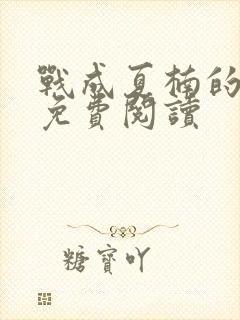 戰成夏楠的
免費閱讀
糖寶吖